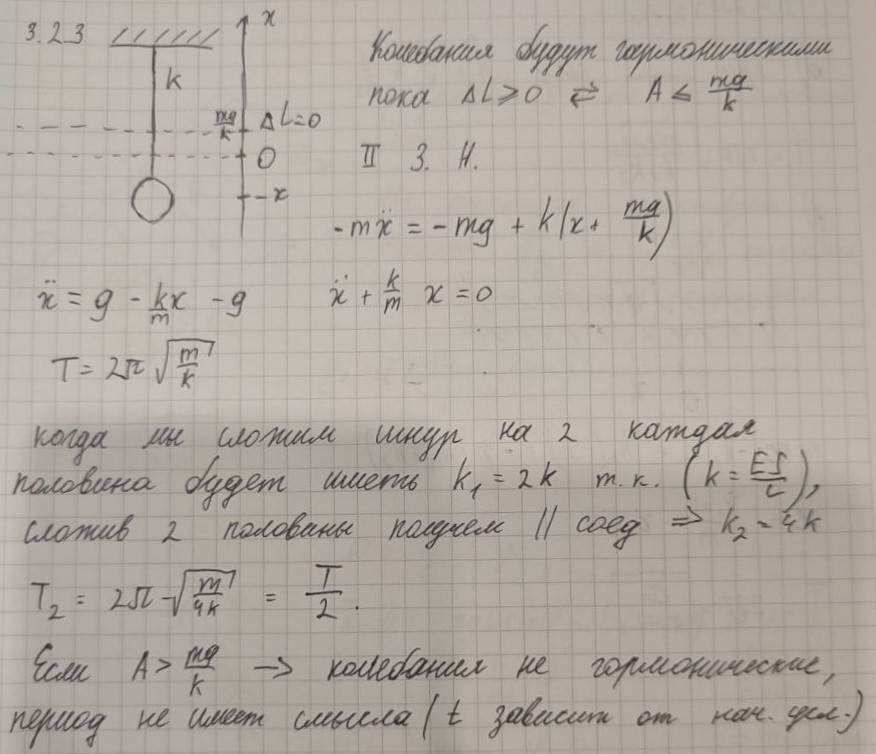 3.2.3
x
k
mg/k ΔL=0
0
-x
Колебания будут гармоническими
пока ΔL ⩾ 0 ⇄ A ⩽ mg/k
II З. Н.
-mẍ = -mg + k(x + mg/k)
ẍ = g - kx/m - g ẍ + k/m x = 0
T = 2π √(m/k)
когда мы сложим шнур на 2 каждая
половина будет иметь k₁ = 2k т.к. (k = ES/L),
сложив 2 половины получем // соед ⇒ k₂ = 4k
T₂ = 2π √(m/4k) = T/2.
Если A > mg/k → колебания не гормонические,
период не имеет смысла (t зависит от нач. усл.)